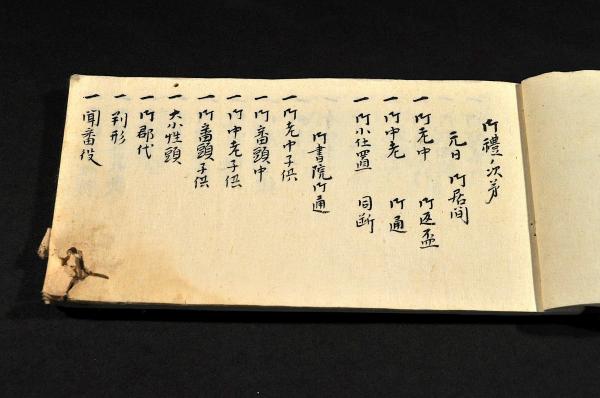 御禮ノ次第
元日 御居間
一 御老中 御返盃
一 御中老 御通
一 御小仕置 同断
御書院御通
一 御老中子供
一 御番頭中
一 御中老子供
一 御番頭子供
一 大小性頭
一 御郡代
一 判形
一 聞番役